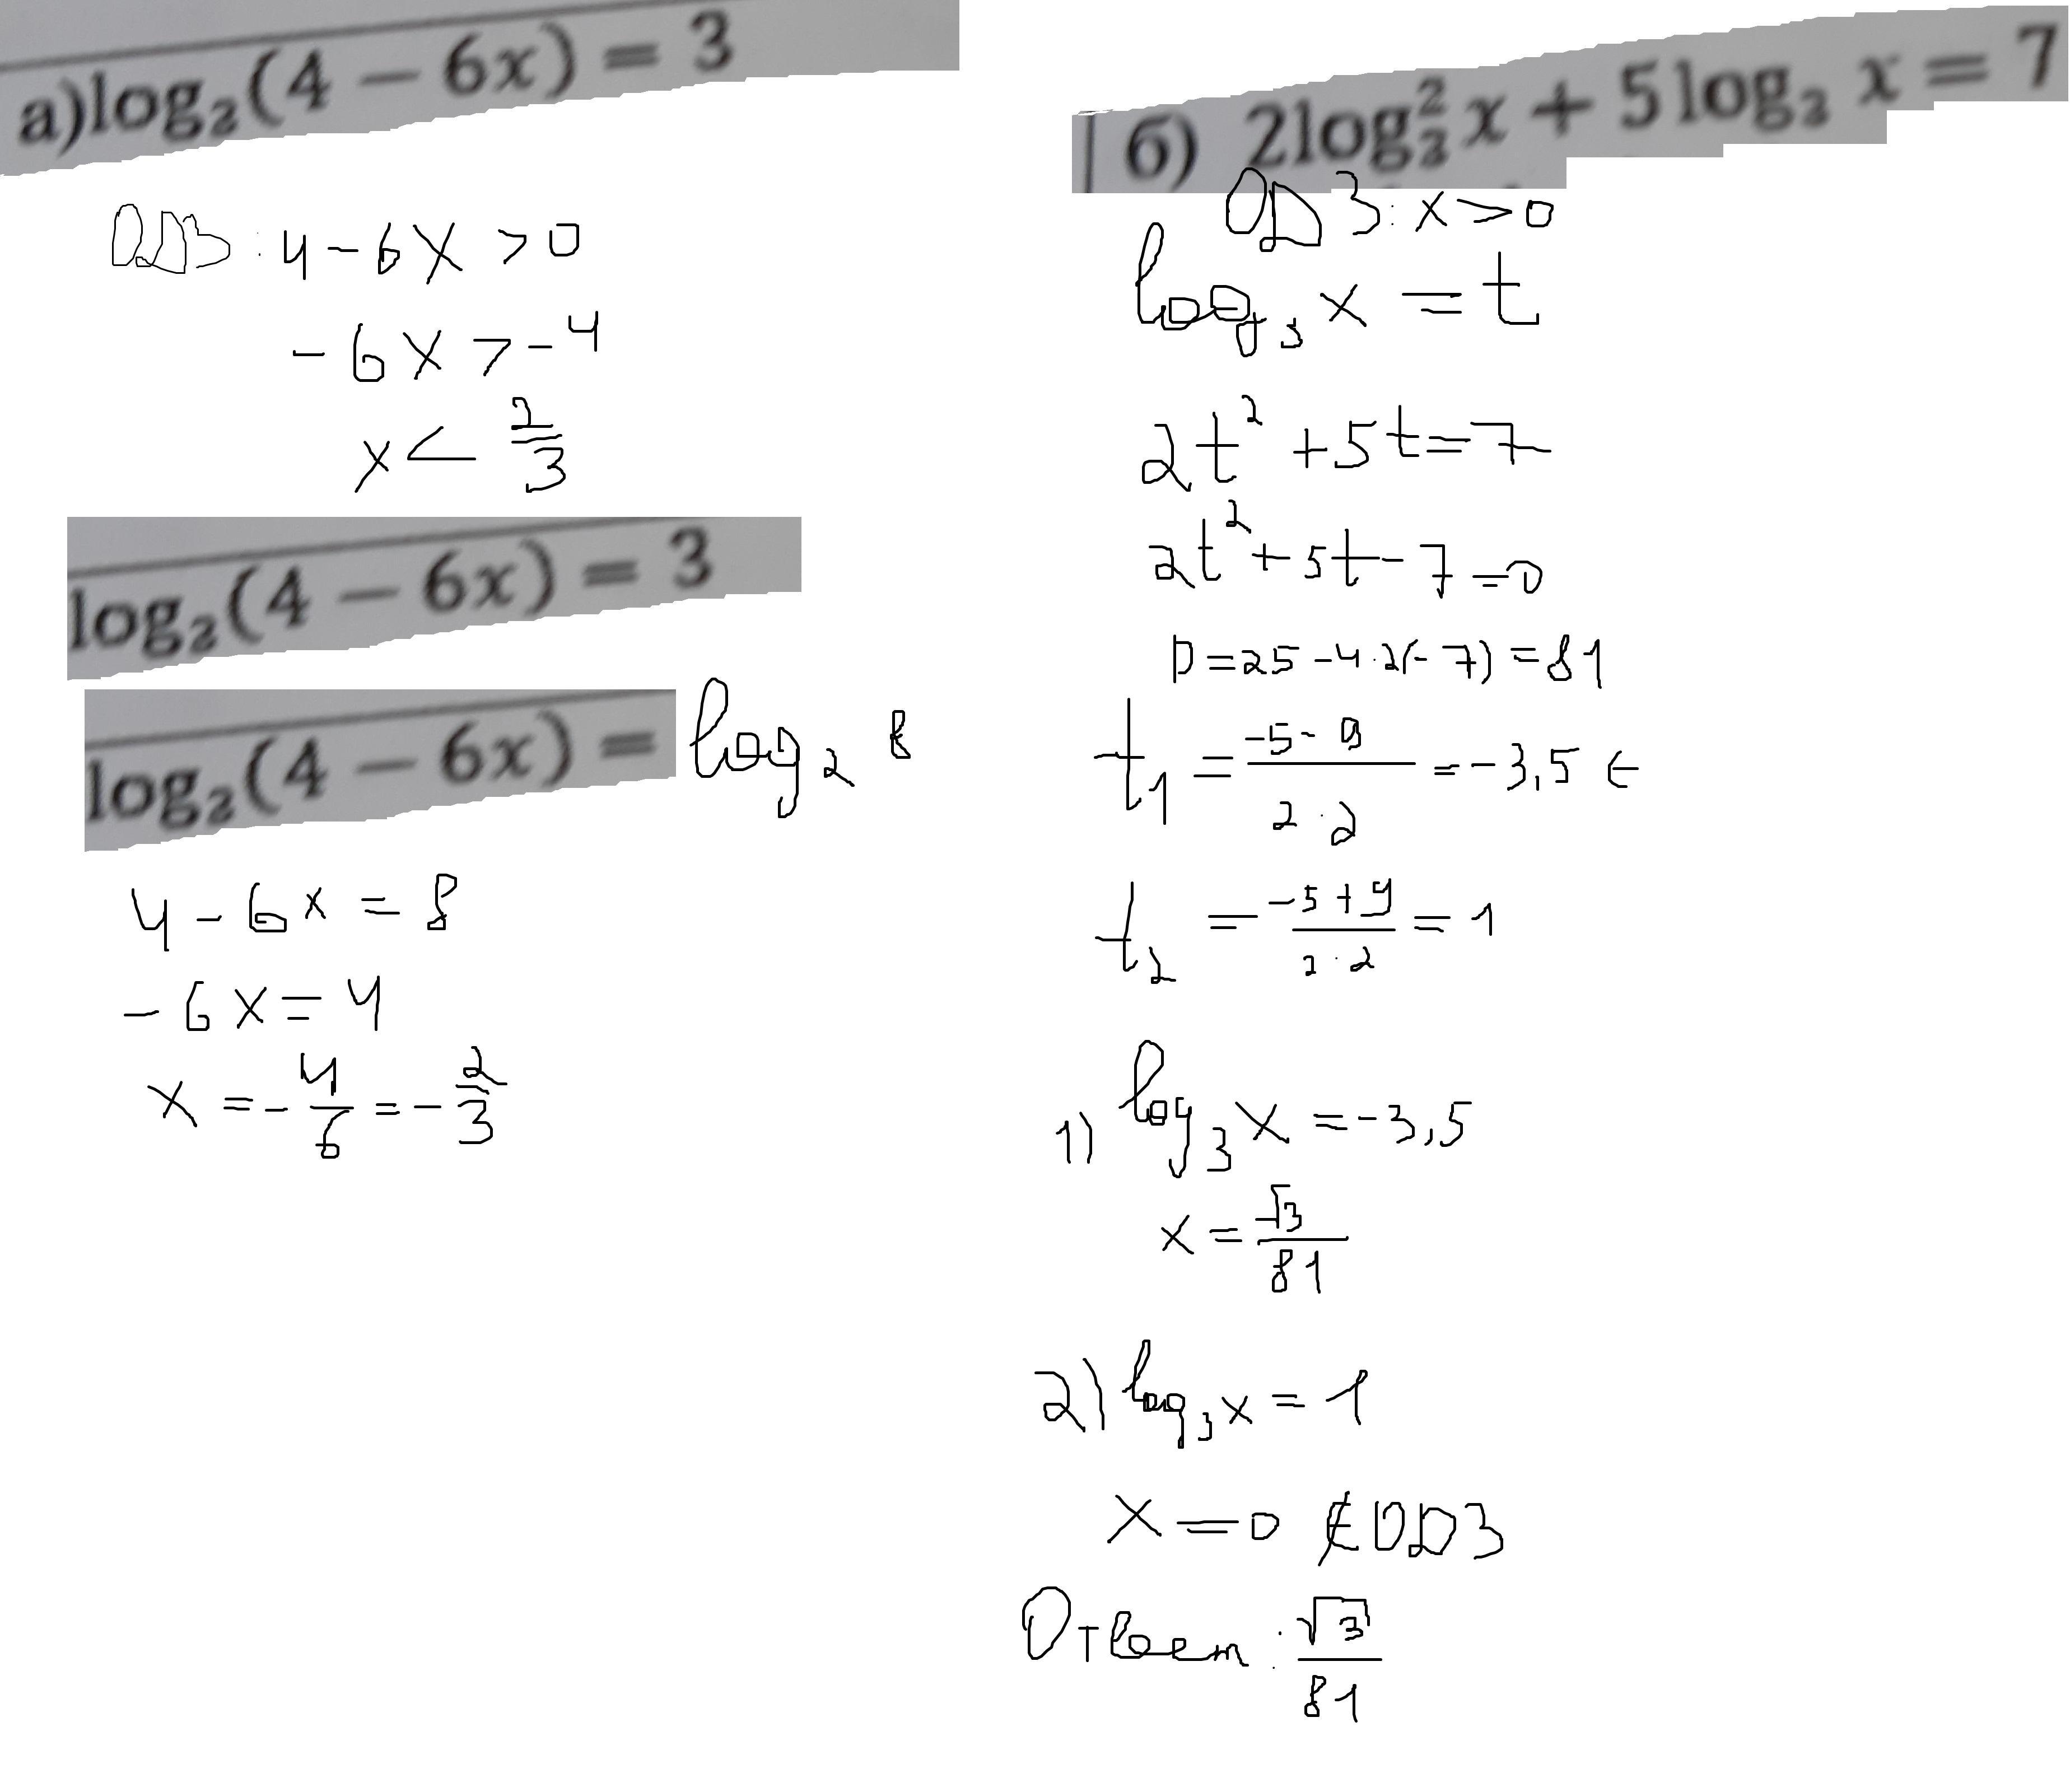 а)log₂(4 − 6x) = 3
ОДЗ: 4 - 6x > 0
- 6x > - 4
x < 2/3
log₂(4 − 6x) = 3
log₂(4 − 6x) = log₂ 8
4 - 6x = 8
- 6x = 4
x = - 4/6 = - 2/3
б) 2log₃²x + 5log₃ x = 7
ОДЗ: x > 0
log₃ x = t
2t² + 5t = 7
2t² + 5t - 7 = 0
D = 25 - 4·2(-7) = 81
t₁ = (-5 - 9)/(2·2) = -3,5 ∈
t₂ = (-5 + 9)/(2·2) = 1
1) log₃ x = -3,5
x = √3/81
2) log₃ x = 1
x = 0 ∉ ОДЗ
Ответ: √3/81